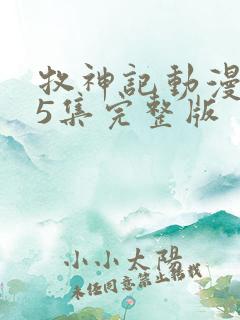 牧神記動漫
5集完整版
小小太陽
未任同意禁止轉載